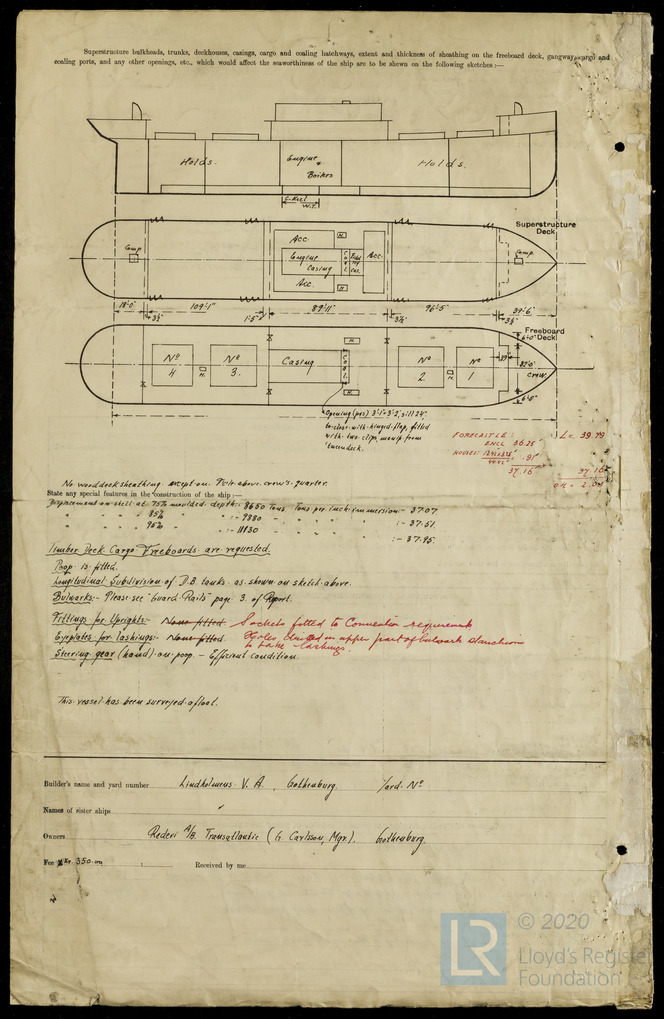 Superstructure bulkheads, trunks, deckhouses, casings, cargo and coaling hatchways, extent and thickness of sheathing on the freeboard deck, gangway, cargo and
coaling ports, and any other openings, etc., which would affect the seaworthiness of the ship are to be shewn on the following sketches :—
Holds.
Engine
+
Boilers
Holds.
W.T.
Superstructure
Deck.
Comp.
Acc.
H.
Engine
Casing
Coal
Acc.
Acc.
H.
Comp.
18'-0"
3½"
109'-1"
1'-5"
89'-11"
3½"
96'-5"
3½"
39'-6"
Freeboard
Deck
Nº
4
H.
Nº
3.
Casing
Coal
H.
H.
Nº
2
H.
Nº
1
Crew.
6'-5"
Opening (p&s) 3'-1" × 3'-2", sill 24"
to close with hinged flap, fitted
with two clips, manip from
'tween deck.
FORECASTLE:
ENCL 36.25
HOUSES:
.91
37.16
L = 39.79
37.16
No wood deck sheathing except on Fc'le above crew's quarter.
State any special features in the construction of the ship :—
Displacement on shell at 75% moulded depth:- 8650 Tons Tons per inch immersion:- 37.07
" " " 85% " " :- 9880 " " " " :- 37.51
" " " 95% " " :- 11130 " " " " :- 37.95
Timber Deck Cargo Freeboards are requested.
Poop is fitted.
Longitudinal Subdivision of D.B. tanks as shown on sketch above.
Bulwarks:- Please see "Guard Rails" page 3. of Report.
Fittings for Uprights:- None fitted Sockets fitted to Convention requirements
Eyeplates for lashings:- None fitted. Holes in upper part of bulwark stanchions
to take lashings.
Steering gear (hand) on poop. – Efficient condition.
This vessel has been surveyed afloat.
Builder's name and yard number Lindholmens V. A., Gothenburg. Yard. Nº
Names of sister ships
Owners Rederi A/B. Transatlantic (G. Carlsson, Mgr.). Gothenburg.
Fee Kr. 350.00 : Received by me
LR
© 2020
Lloyd's Register
Foundation